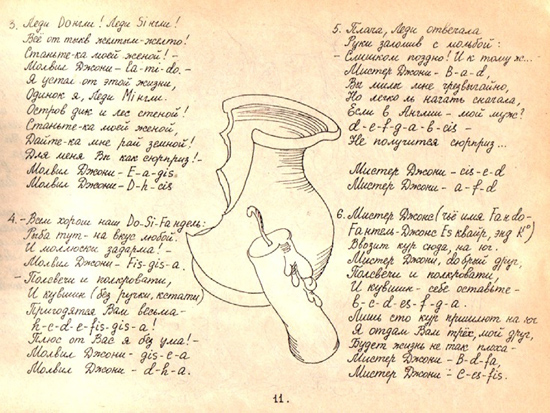 3. Леди Doнгли! Леди Siнгли!
Всё от тыкв желтым-желто!
Станьте-ка моей женой! -
Молвил Джони - la-mi-do. -
Я устал от этой жизни,
Одинок я, Леди Miнгли.
Остров дик и лес стеной!
Станьте-ка моей женой,
Дайте-ка мне рай земной!
Для меня Вы как сюрприз! -
Молвил Джони - E-a-gis.
Молвил Джони - D-h-cis
4. - Всем хорош наш Do-Si-Faндель:
Рыба тут - на вкус любой.
И моллюски задарма! -
Молвил Джони - Fis-gis-a.
- Полсвечи и полкровати,
И кувшин (без ручки, кстати)
Пригодятся Вам весьма -
h-c-d-e-fis-gis-a!
Плюс от Вас я без ума! -
Молвил Джони - gis-e-a
Молвил Джони - d-h-a.
5. Плача, Леди отвечала
Руки заломив с мольбой:
- Слишком поздно! И к тому ж...
Мистер Джони - B-a-d,
Вы милы мне чрезвычайно,
Но легко ль начать сначала,
Если в Англии - мой муж?
d-e-f-g-a-b-cis -
Не получится сюрприз...
Мистер Джони - cis-e-d
Мистер Джони - a-f-d
6. Мистер Джонс (чьё имя Faкdo-
Faнтель-Джонс Esквайр, энд К°)
Ввозит кур сюда, на юг.
Мистер Джони, добрый друг,
Полсвечи и полкровати,
И кувшин - себе оставьте -
b-c-d-es-f-g-a..
Лишь сто кур пришлют на юг
Я отдам Вам трёх, мой друг,
Будет жизнь не так плоха -
Мистер Джони - B-d-fa,
Мистер Джони - C-es-fis.
11.